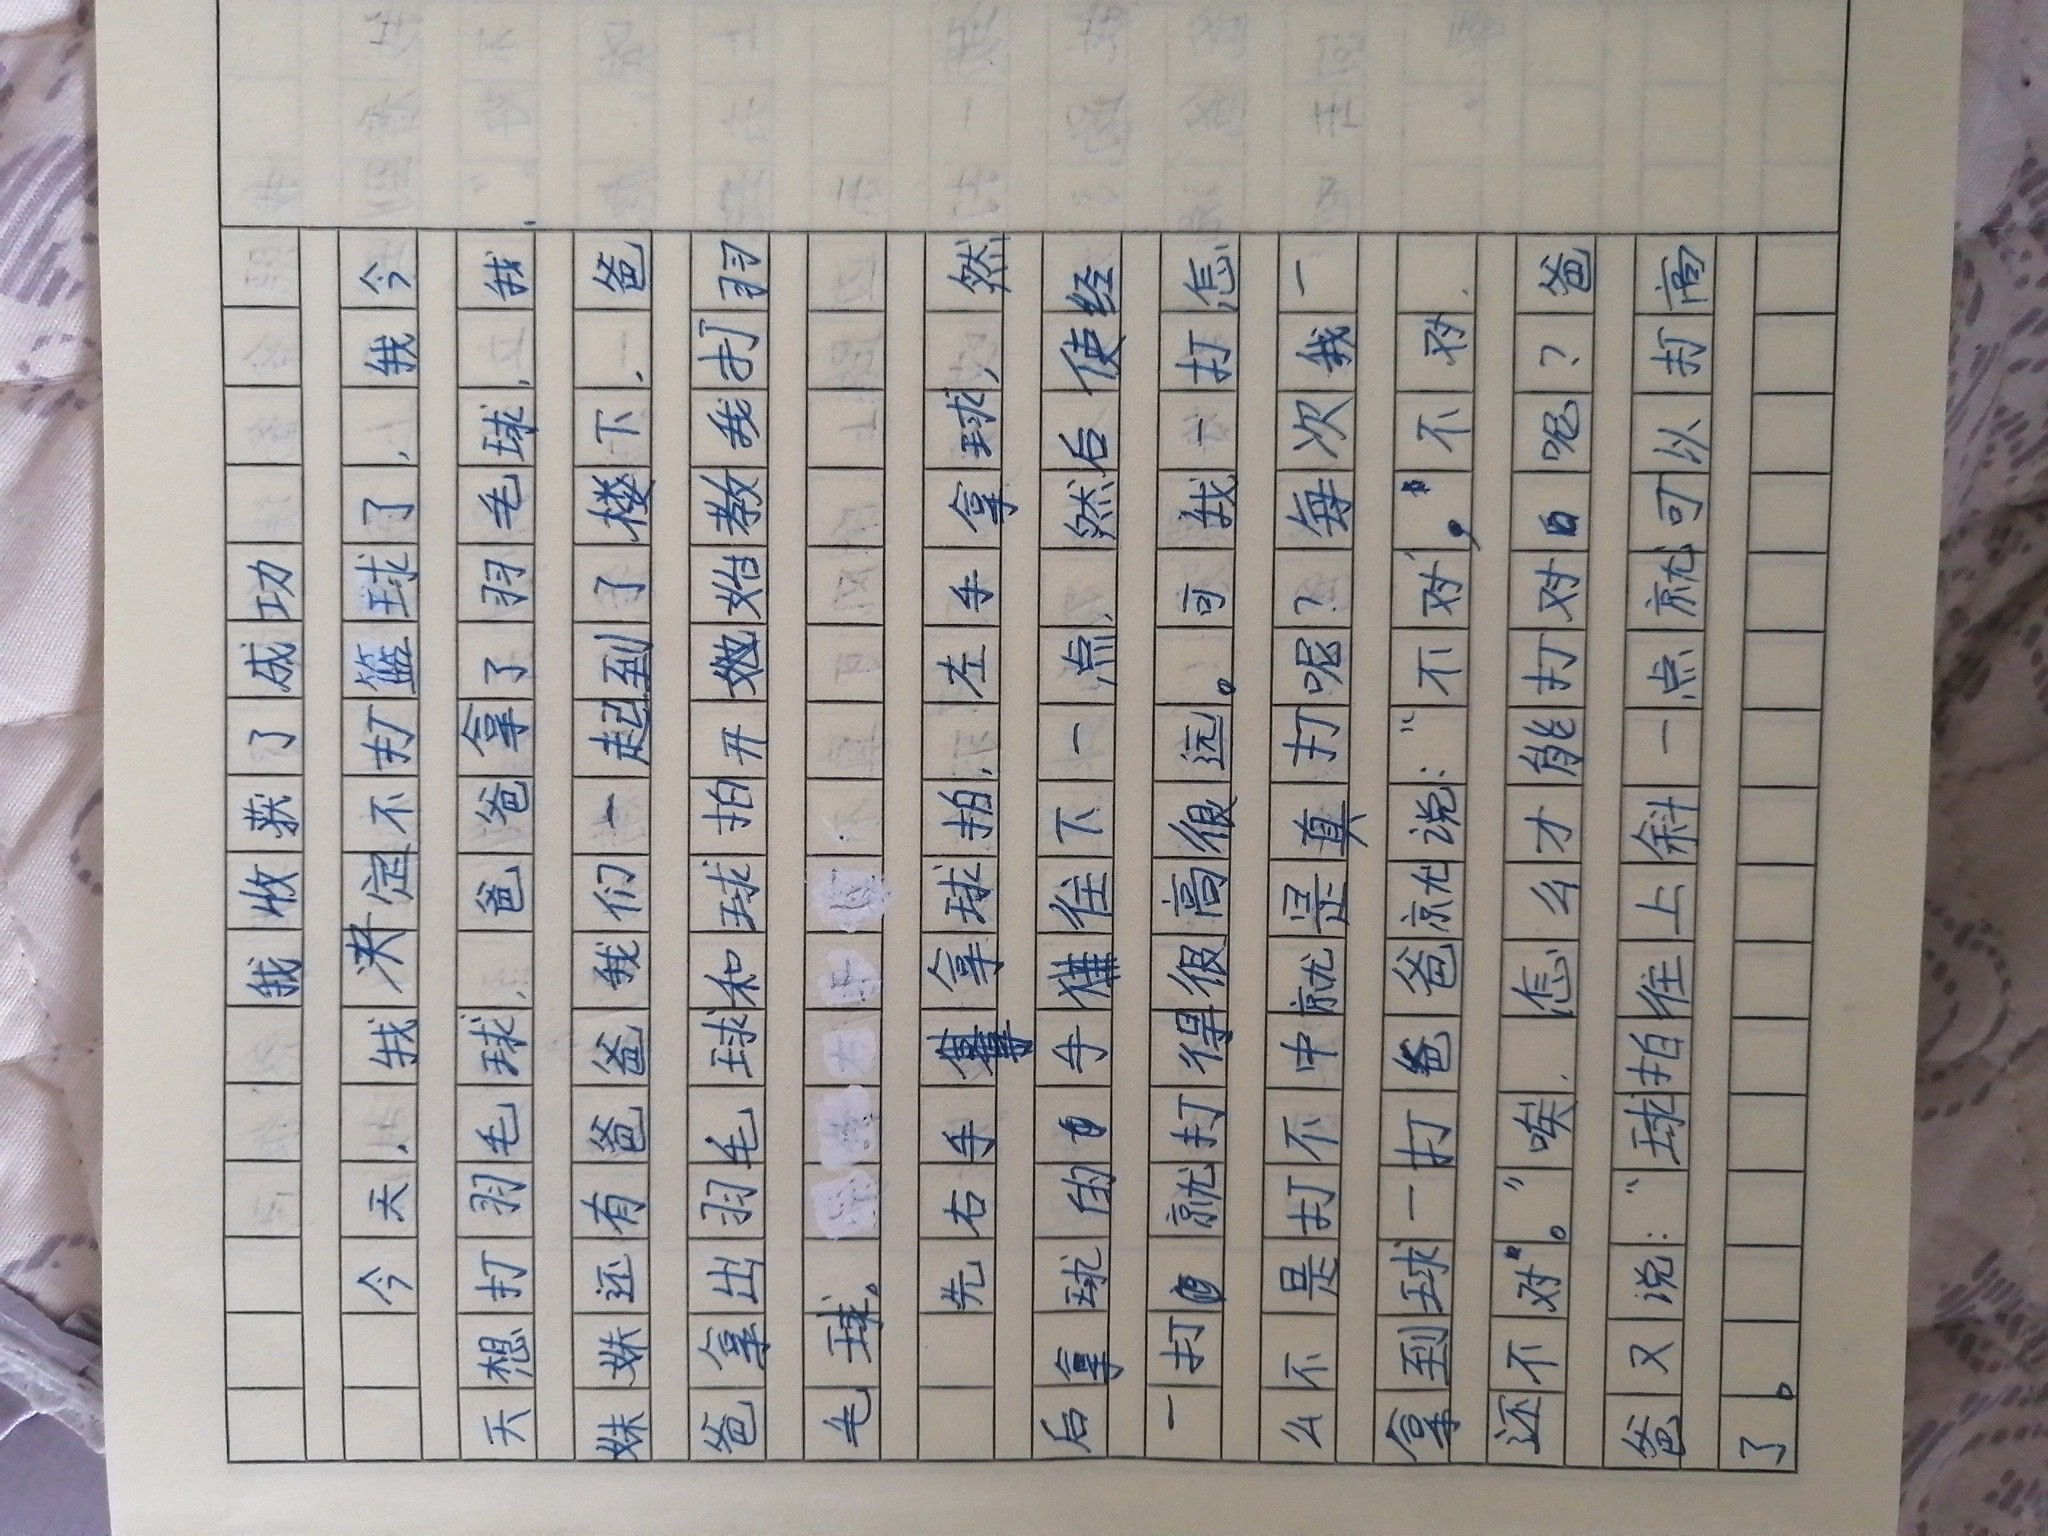 我收获了成功
今天，我决定不打篮球了，我今
天想打羽毛球，爸爸拿了羽毛球，我
妹妹还有爸爸我们一起到了楼下，爸
爸拿出羽毛球和球拍开始教我打羽
毛球。
先右手拿球拍，左手拿球，然
后拿球的手往下一点，然后使经
一打就打得很高很远。可我一打怎
么不是打不中就是真打呢？每次我一
拿到球一打爸爸就说：“不对，不对，
还不对。”唉，怎么才能打对呢？爸
爸又说：“球拍往上斜一点就可以打高
了。